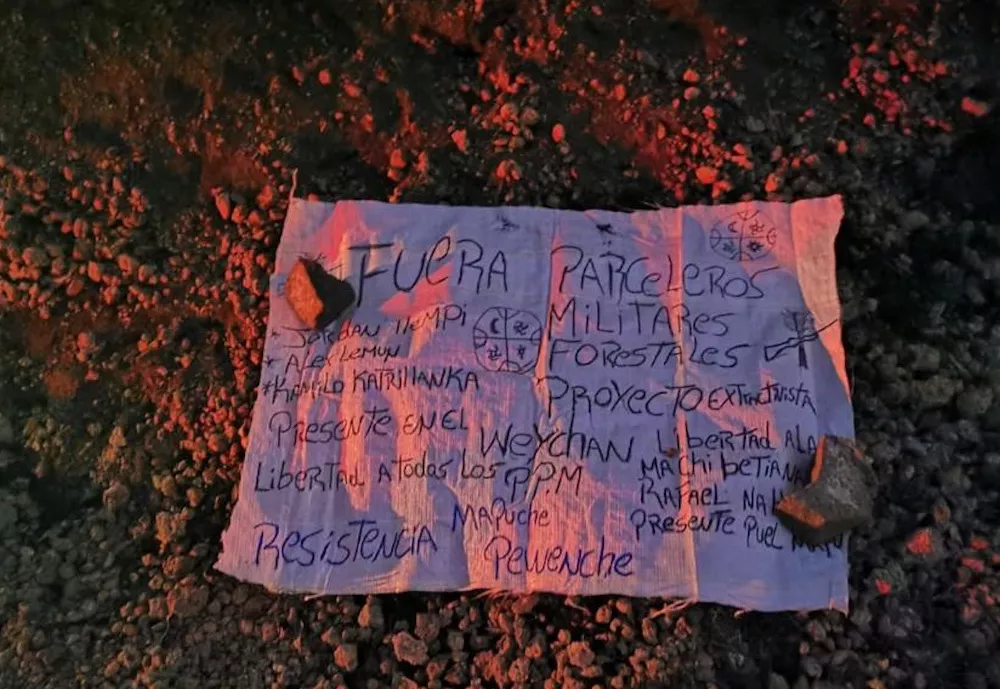 FUERA PARCELEROS
MILITARES
FORESTALES
PROYECTO EXTRACTIVISTA
* JORDAN
* ALEX LEMUN
* KAMILO KATRILLANKA
PRESENTE EN EL
WEYCHAN
LIBERTAD A TODOS LOS
P.P.M
LIBERTAD A LA
MACHI BETIANA
RAFAEL
PRESENTE PUEL MAPU
RESISTENCIA
MAPUCHE
PEWENCHE